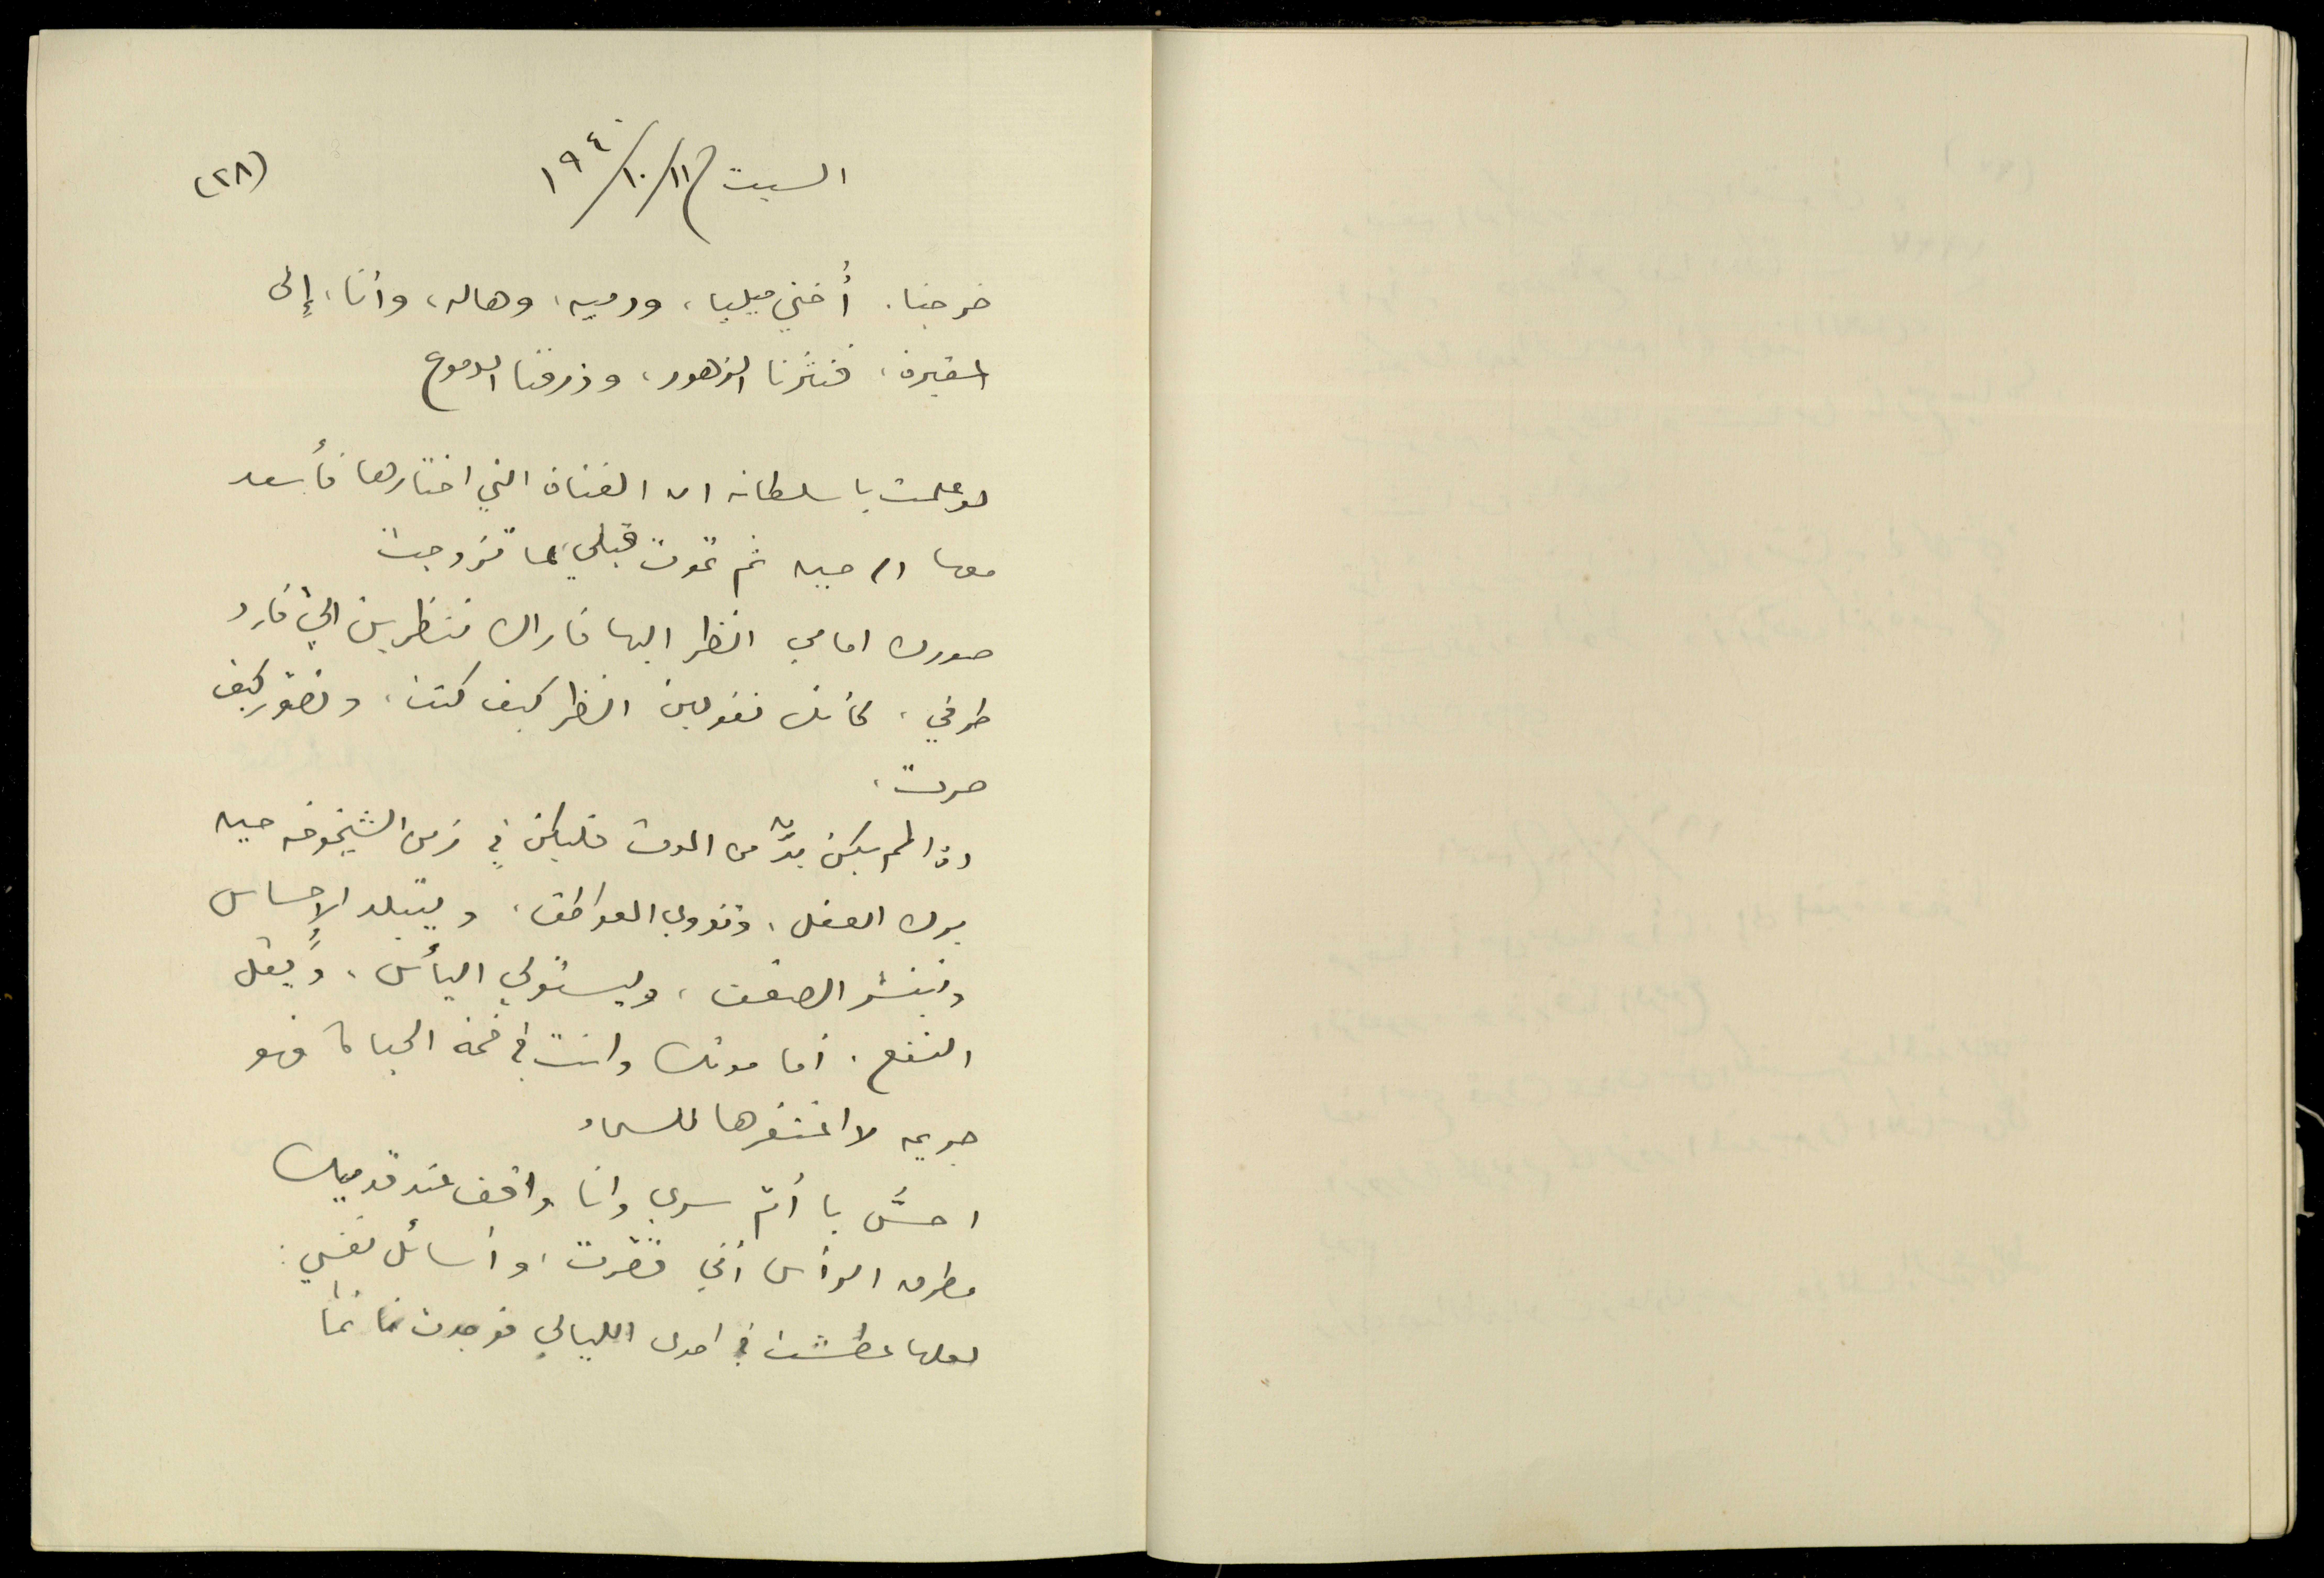 (٢٨)
السبت ١١/١٠/١٩٤٠
خرجنا. أختي ميليا، ودميه، وهاله، وأنا، إلى
المقبرة، فنثرنا الزهور، وذرفنا الدموع
لو علمت يا سلطانه ان الفتاة التي اختارها فأسعد
معها الا حبيه ثم تموت قبلي، لما تزوجت
صورتك امامي انظر اليها فاراك تنظرين اليّ فارد
طرفي، كأنك تقولين انظر كيف كنت، وتصوّر كيف
صرت.
اذا لم يكن بدّ من الموت فليكن في زمن الشيخوخه حيه
يرك العقل، وتذوي العواطف، ويتبلد الإحساس
وينتشر الضعف، ويستولي اليأس، ويقل
النفع. أما موتك وانت في قمة الحياة فهو
جريمه لا اغتفرها للسماء
احسّ يا أمّ سري وانا واقف عند قدميك
مطرق الرأس أني قصّرت، وأسائل نفسي:
لعلها عطشت في احدى الليالي فوجدت نائماً